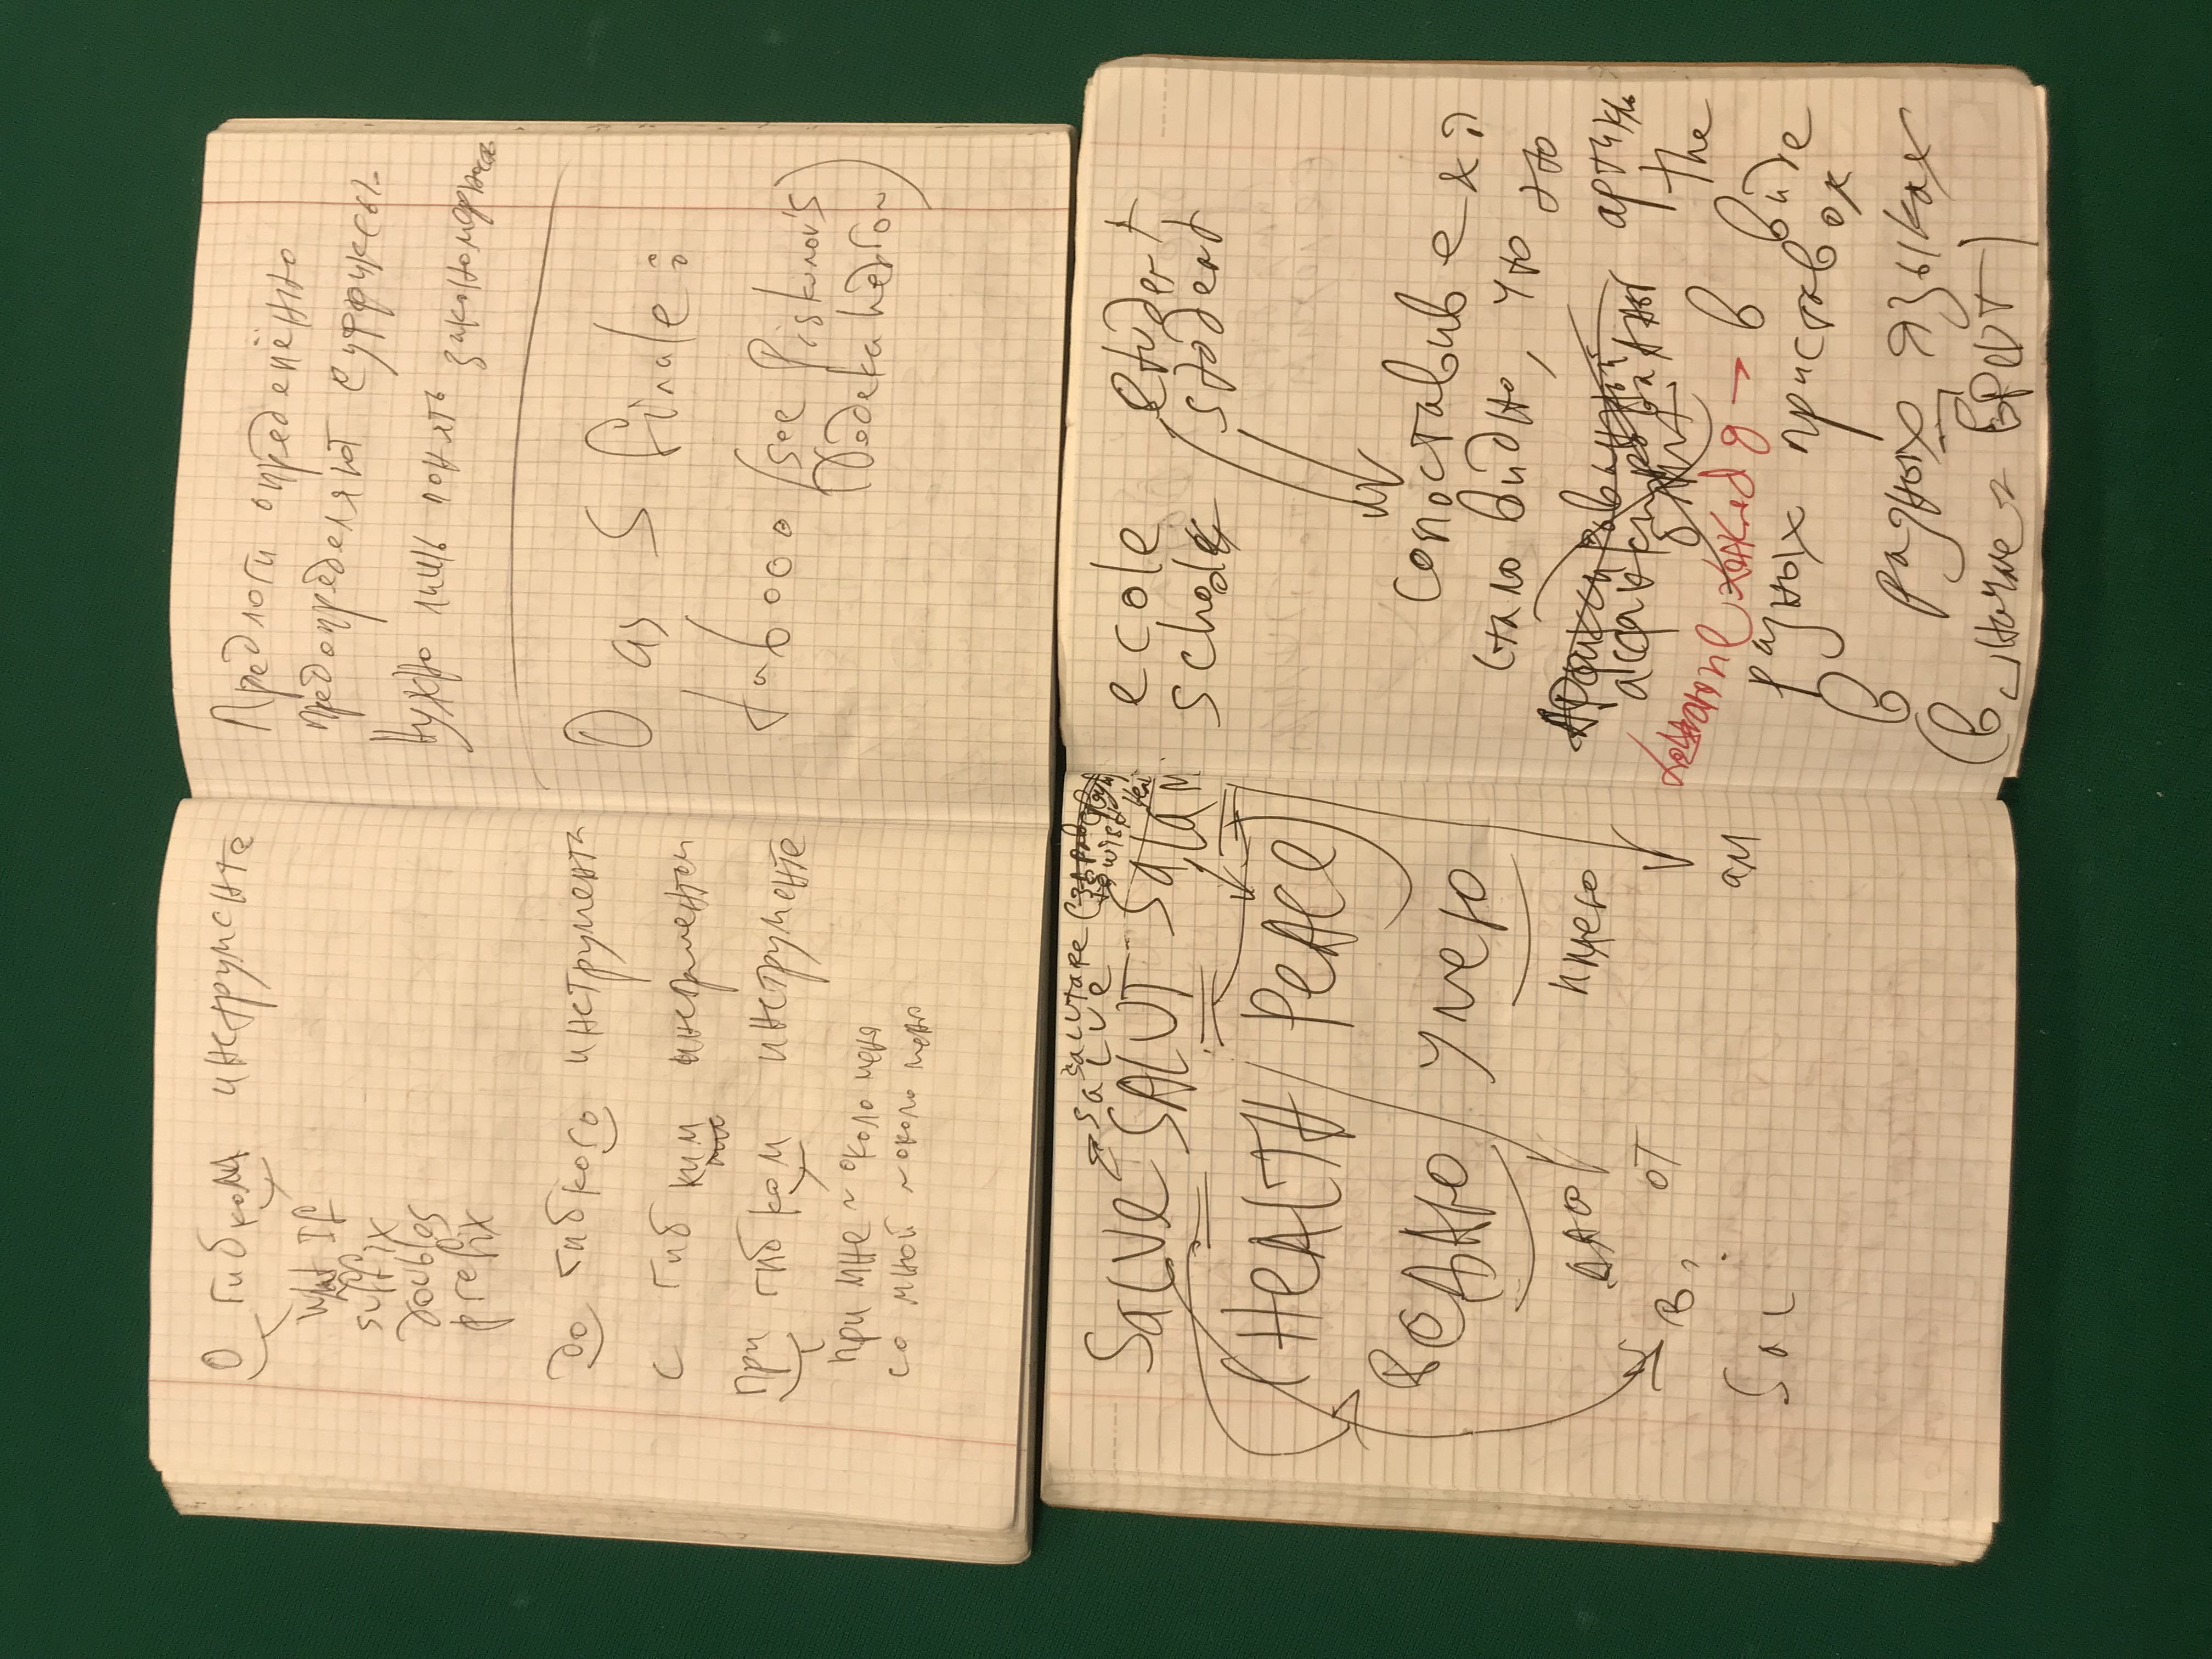 О гибком инструменте
What If
suffix
doubles
prefix
до гибкого инструмента
с гибким инструментом
при гибком инструменте
при мне ~ около меня
со мной ~ около меня
Предлоги определённо
предопределяют суффиксы.
Нужно лишь понять закономерность
O as S finale:
(see Piskunov's
Dodekahedron)
salutare
salve
SALVE SALUT Salam
(HEALTH / PEACE)
умею
имею
в, от
ам
Sal
ecole etudent
schole student
сопоставив
стало видно, что это
артикль
the
в виде
разных приставок
в разных языках